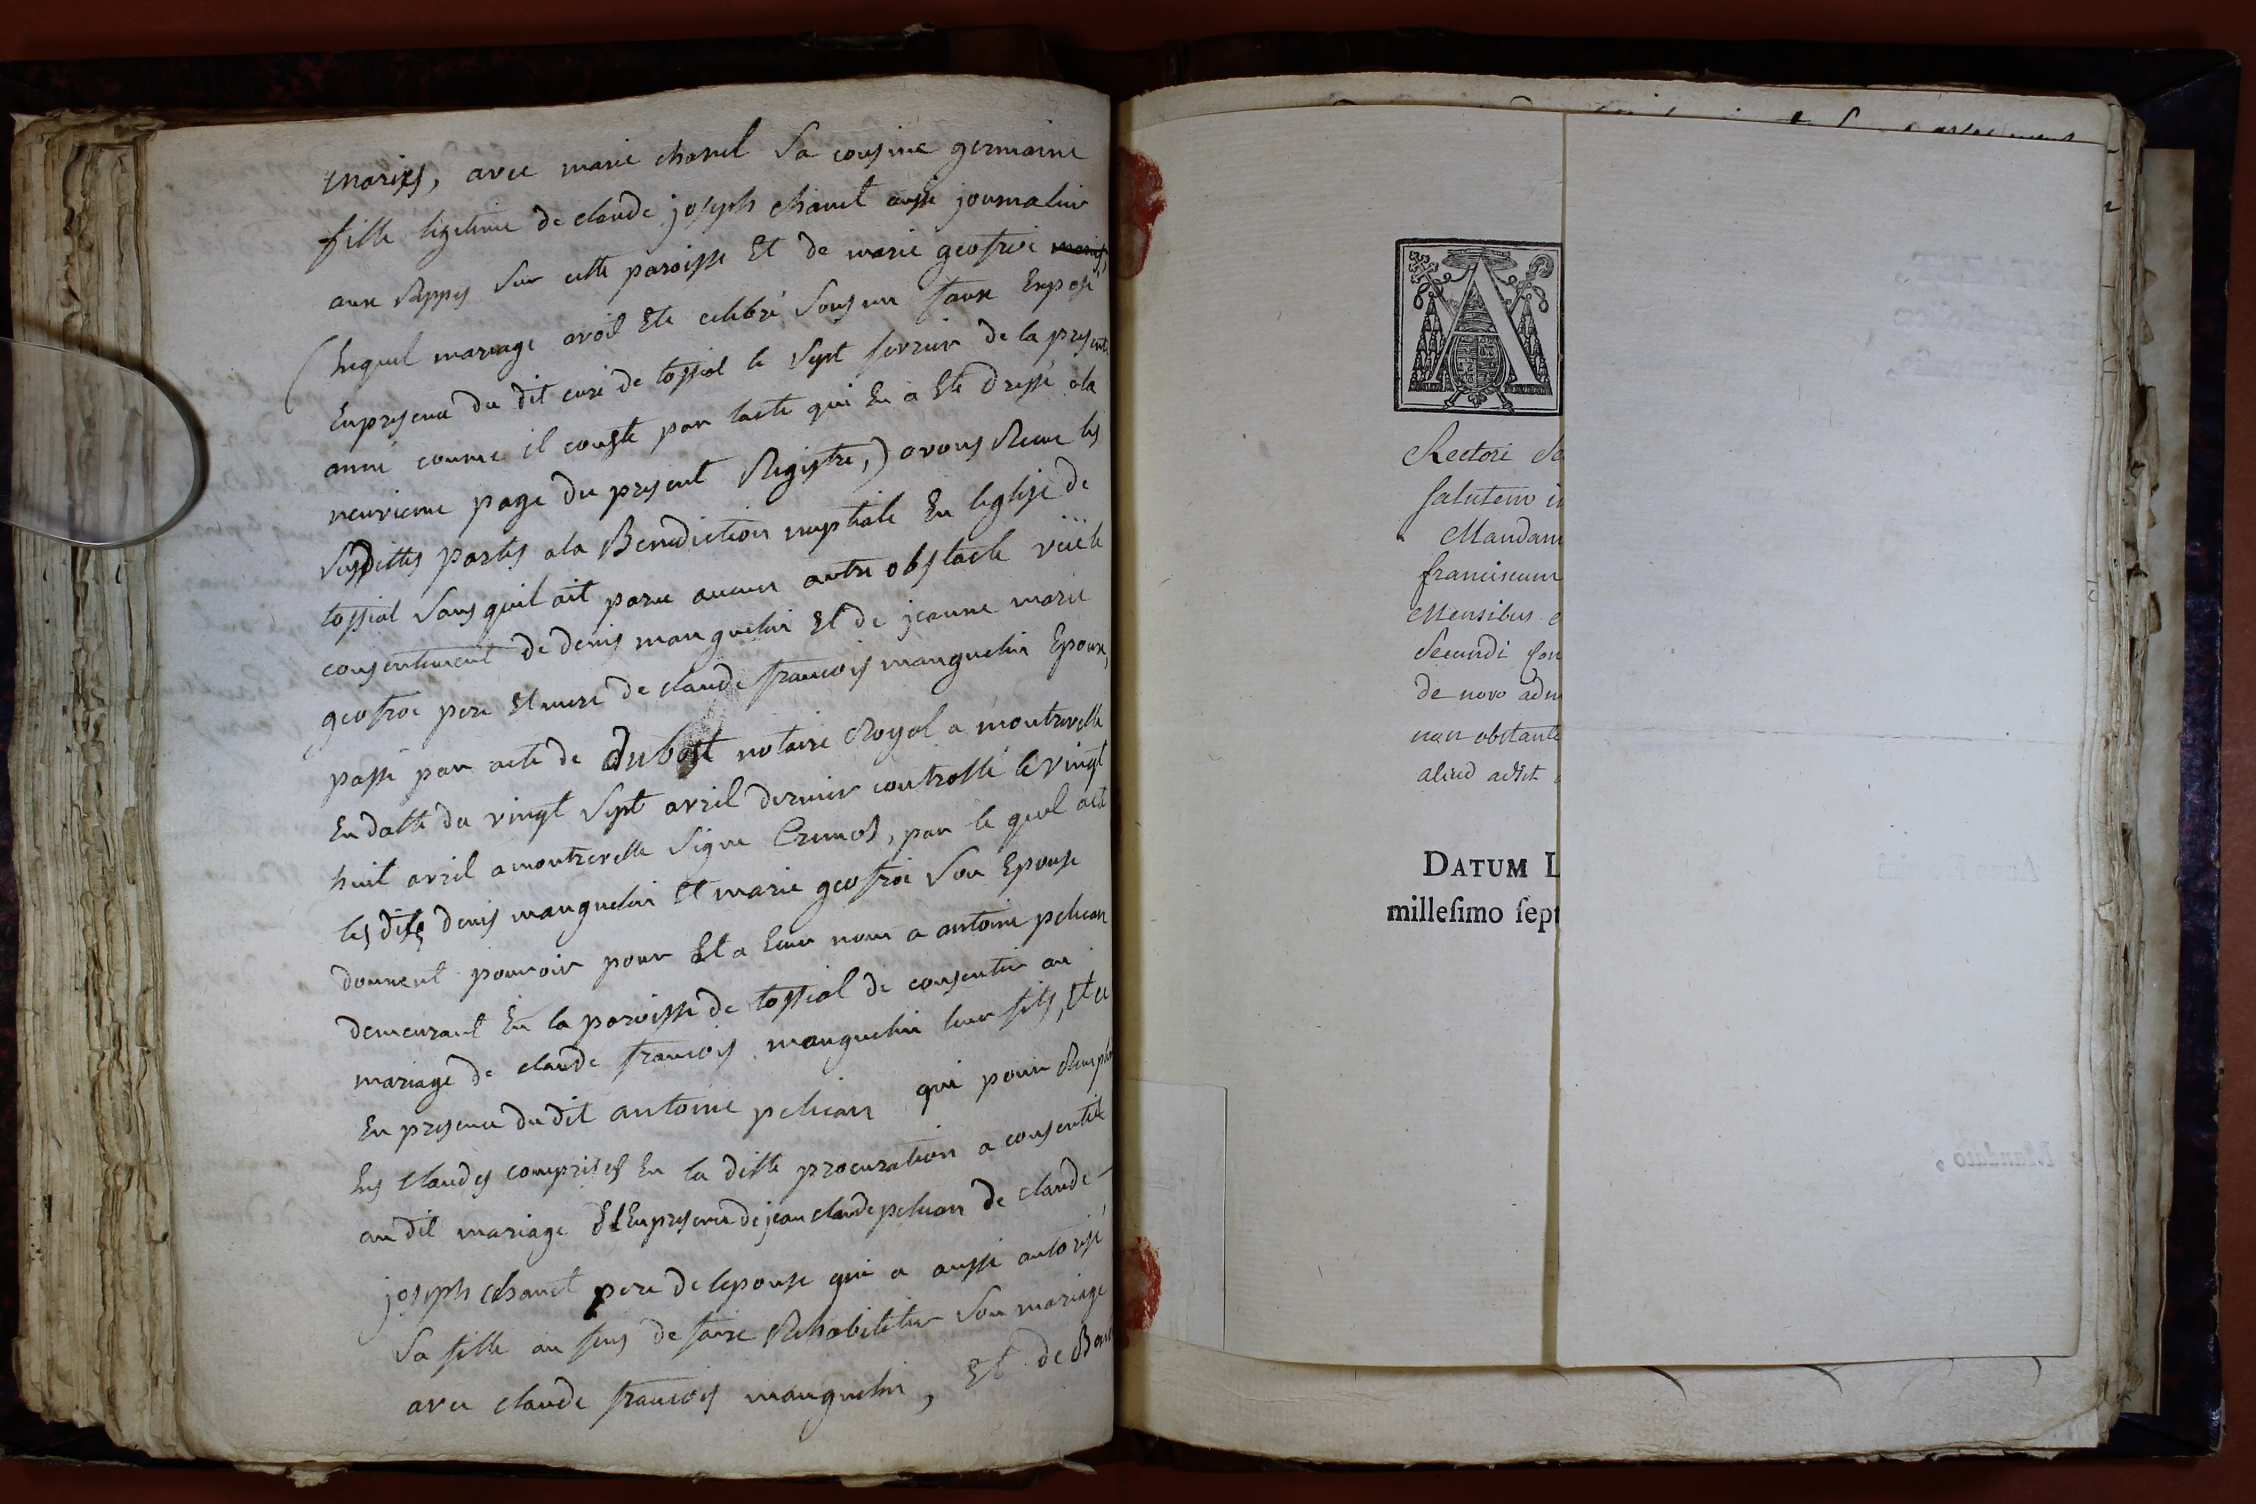 mariés, avec marie chanel sa cousine germaine
fille legitime de claude joseph chanel aussi journalier
aux sappes sur cette paroisse Et de marie geofroi mariés,
(lequel mariage avoit Eté celebré sous un faux Exposé
En presence du dit curé de fossiat le sept fevrier de la presente
année comme il conste par lacte qui En a Eté dressé a la
neuvieme page du present Registre,) avons Recue les
susdittes parties a la Benediction nuptiale En leglise de
fossiat sans quil ait parue aucun autre obstacle veüe le
consentement de denis manguelin Et de jeanne marie
geofroi pere Et mere de claude francois manguelin Epoux,
passé par acte de dubost notaire Royal a montrevelle
En datte du vingt sept avril dernier controllé le vingt
huit avril a montrevelle signé par le quel acte
les dits denis manguelin Et marie geofroi son Epouse
donnent pouvoir pour Et a leur nom a antoine pelican
demeurant En la paroisse de fossiat de consentir au
mariage de claude francois manguelin leur fils, Et ce
En presence du dit antoine pelican qui pour Remplir
les clauses comprises En la ditte procuration a consentit
au dit mariage Et En presence de jean claude pelican de claude
joseph chanel pere de lepouse qui a aussi autorisé
sa fille au fins de faire Rehabiliter son mariage
avec claude francois manguelin, Et de
A
Rectori
salutem
Mandam
franciscum
Mensibus
Secundi
de novo adm
non obstante
aliud adsit
DATUM L
millesimo sept